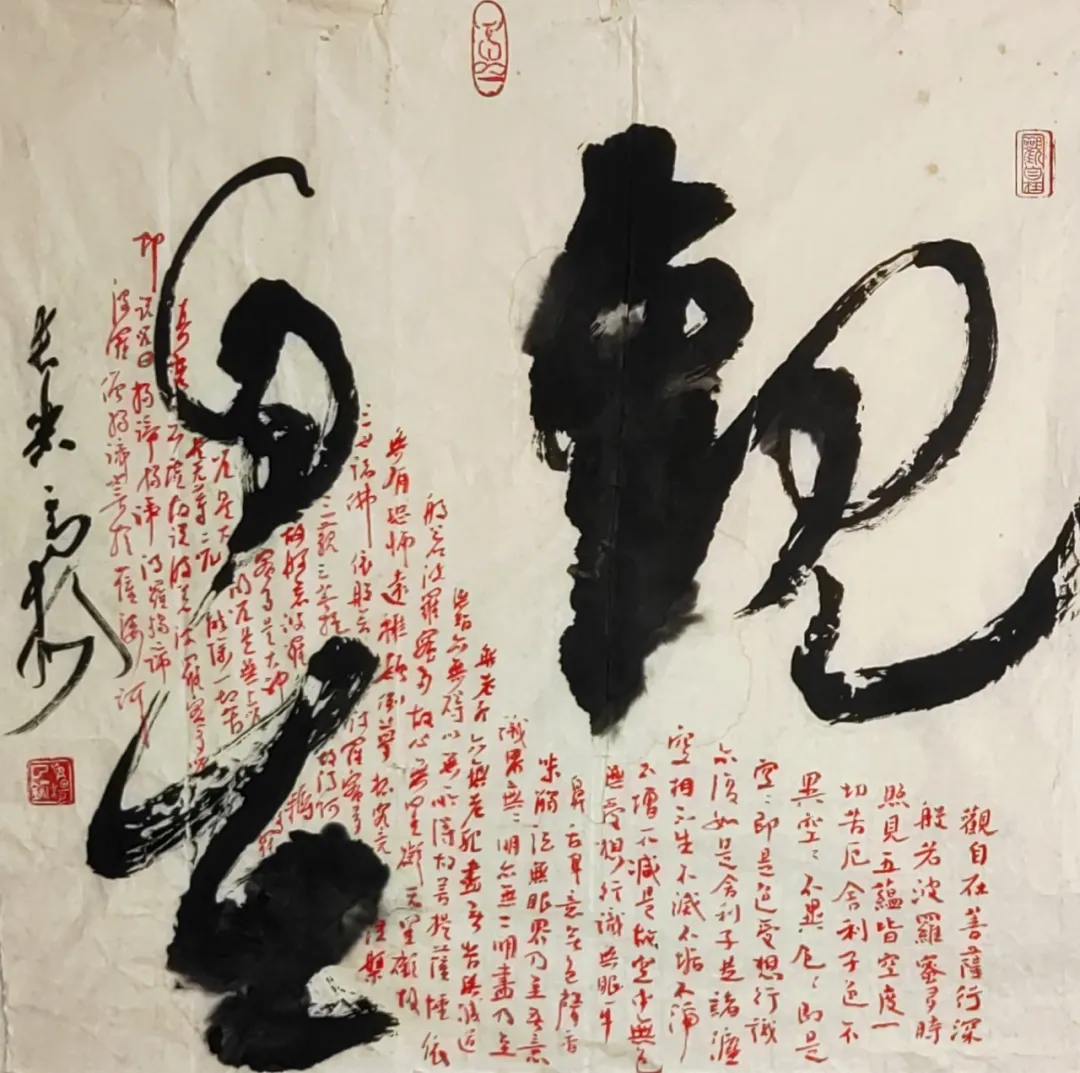 觀
觀自在
觀自在菩薩行深
般若波羅蜜多時
照見五蘊皆空度一
切苦厄舍利子色不
異空〻不異色〻即是
空〻即是色受想行識
亦復如是舍利子是諸法
空相不生不滅不垢不淨
不增不減是故空中無色
無受想行識無眼耳
鼻舌身意無色聲香
味觸法無眼界乃至無意
識界無〻明亦無〻明盡乃至
無老死亦無老死盡無苦集滅道
無智亦無得以無所得故菩提薩埵依
般若波羅蜜多故心無罣礙無罣礙故
無有恐怖遠離顛倒夢想究竟涅槃
三世諸佛依般若波羅蜜多
故得阿
三藐三菩提
故知般若波羅
蜜多是大神
咒是大
明咒是無上咒
是無等〻咒
能除一切苦
真實
不虛故說般若波羅蜜多咒
即說咒曰揭諦揭諦波羅揭諦
波羅僧揭諦菩提薩婆訶